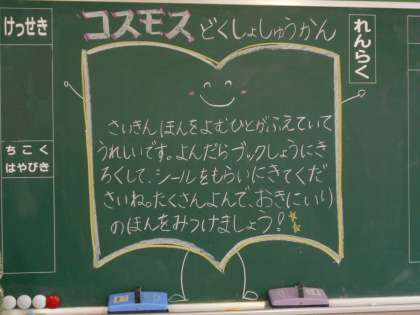 けっせき
コスモス どくしょしゅうかん
れんらく
さいきん ほんをよむひとがふえていて
うれしいです。よんだらブックしょうにき
ろくして、シールをもらいにきてくだ
さいね。たくさんよんで、おきにいり
のほんをみつけましょう！
ちこく
はやびき